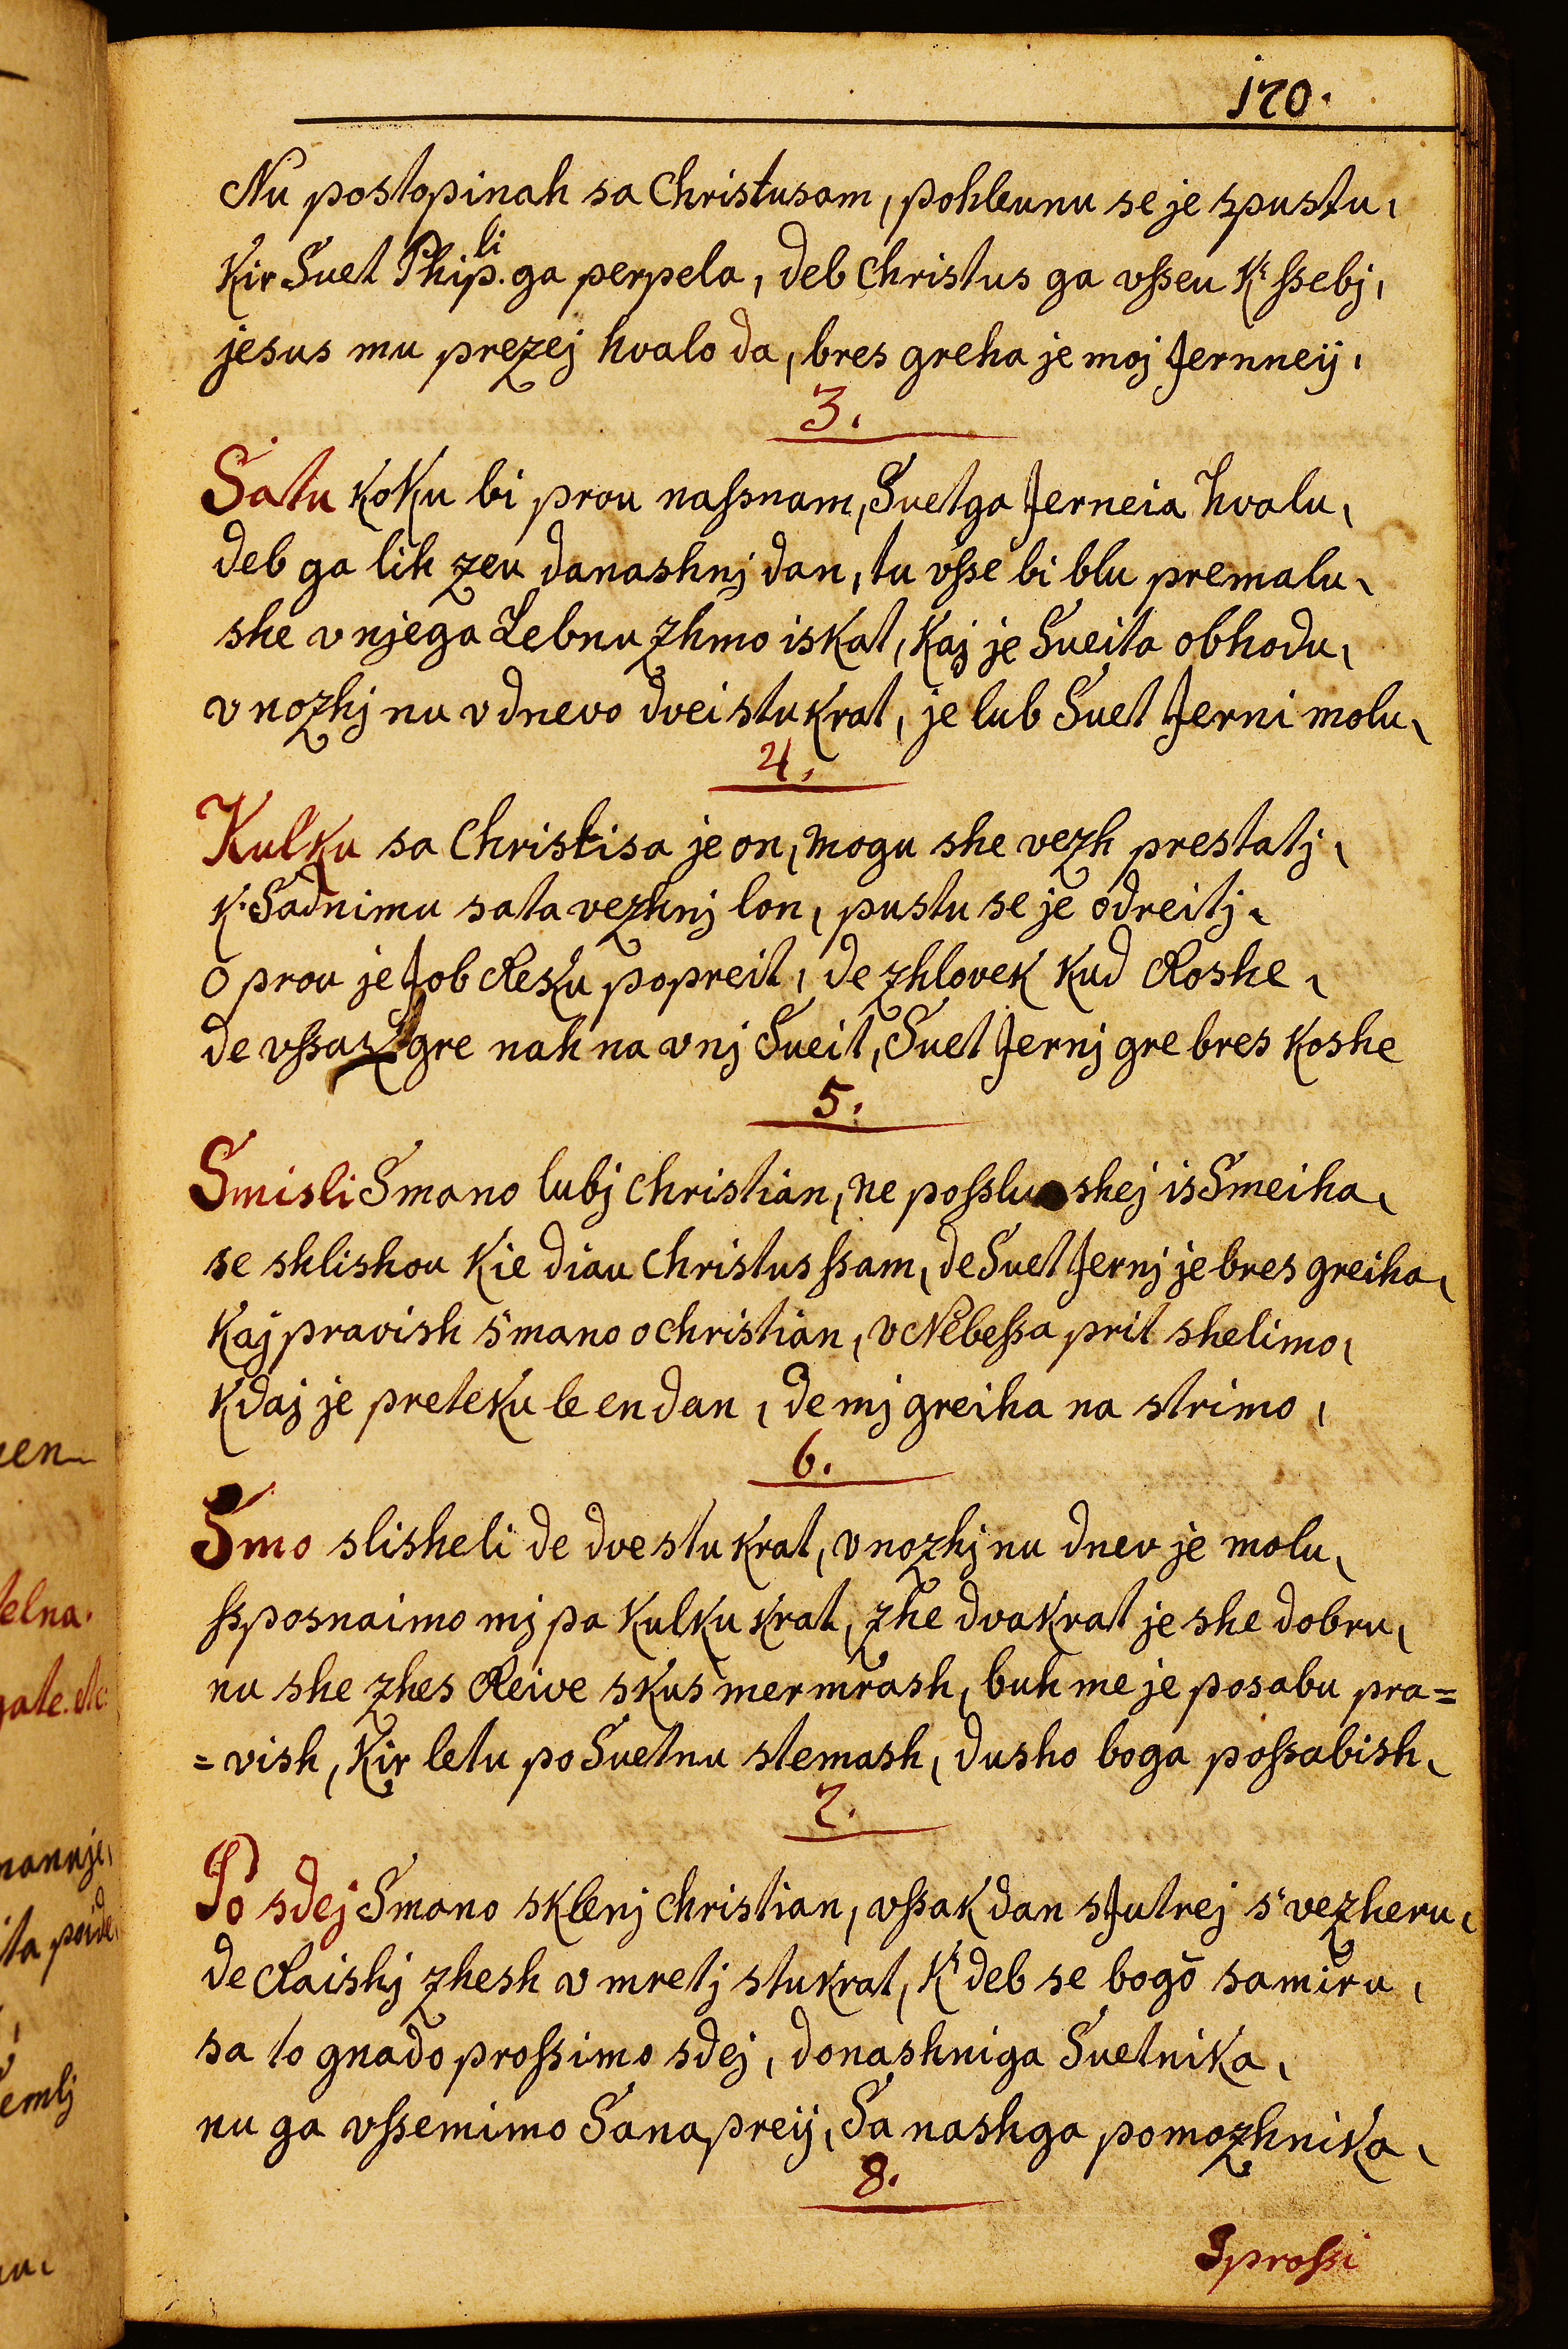 170.
Nu postopinah sa Christusam, pohleunu se je spustu,
Kir Suet Philip. ga perpela, deb Christus ga vßeu K' ßebj,
jesus mu prezej hvalo da, bres greha je moj Jernneij,
3.
Satu koku bi prou naßnam, Suetga Jerneia hvalu,
deb ga lih zeu danashnj dan, tu vße bi blu premalu,
she v njega Lebnu zhmo iskat, kaj je Sueita obhodu,
v nozhj nu v dnevo dvei stu krat, je lub Suet Jerni molu,
4.
Kulku sa Christisa je on, mogu she vezh prestatj,
k. Sadnimu sata vezhnj lon, pustu se je odreitj,
o prou je Job Reku popreit, de zhlovek kud Roshe,
de vßaz gre nah na vnj Sueit, Suet Jernj gre bres koshe
5.
Smisli Smano lubj christian, ne poßlushej is Smeiha,
se shlishou kie diau christus ßam, de Suet Jernj je bres greiha,
kaj pravish s'mano o christian, v Nebeßa prit shelimo,
kdaj je preteku le en dan, de mj greiha na strimo,
6.
Smo slisheli de dve stu krat, v nozhj nu dnev je molu,
ßposnaimo mj pa kulku krat, zhe dvakrat je she dobru,
nu she zhes Reive skus mermrash, buh me je posabu pra=
=vish, kir letu po Suetnu stemash, dusho boga poßabish,
7.
Po sdej Smano sklenj christian, vßak dan sJutrej s'vezheru,
de Raishj zhesh v mretj stukrat, k' deb se bogō samiru,
sa to gnado proßimo sdej, donashniga Suetnika,
nu ga vßemimo Sanapreij, Sa nashga pomozhnika,
8.
Sproßi
elna.
emlj